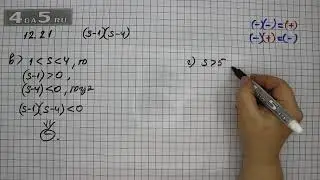 4DA5.RU
12.21 (s-1)(s-4)
(-)(-)=(+)
(-)(+)=(-)
в) 1<s<4, то
(s-1)>0,
(s-4)<0, тогда
(s-1)(s-4)<0
⊖.
г) s>5